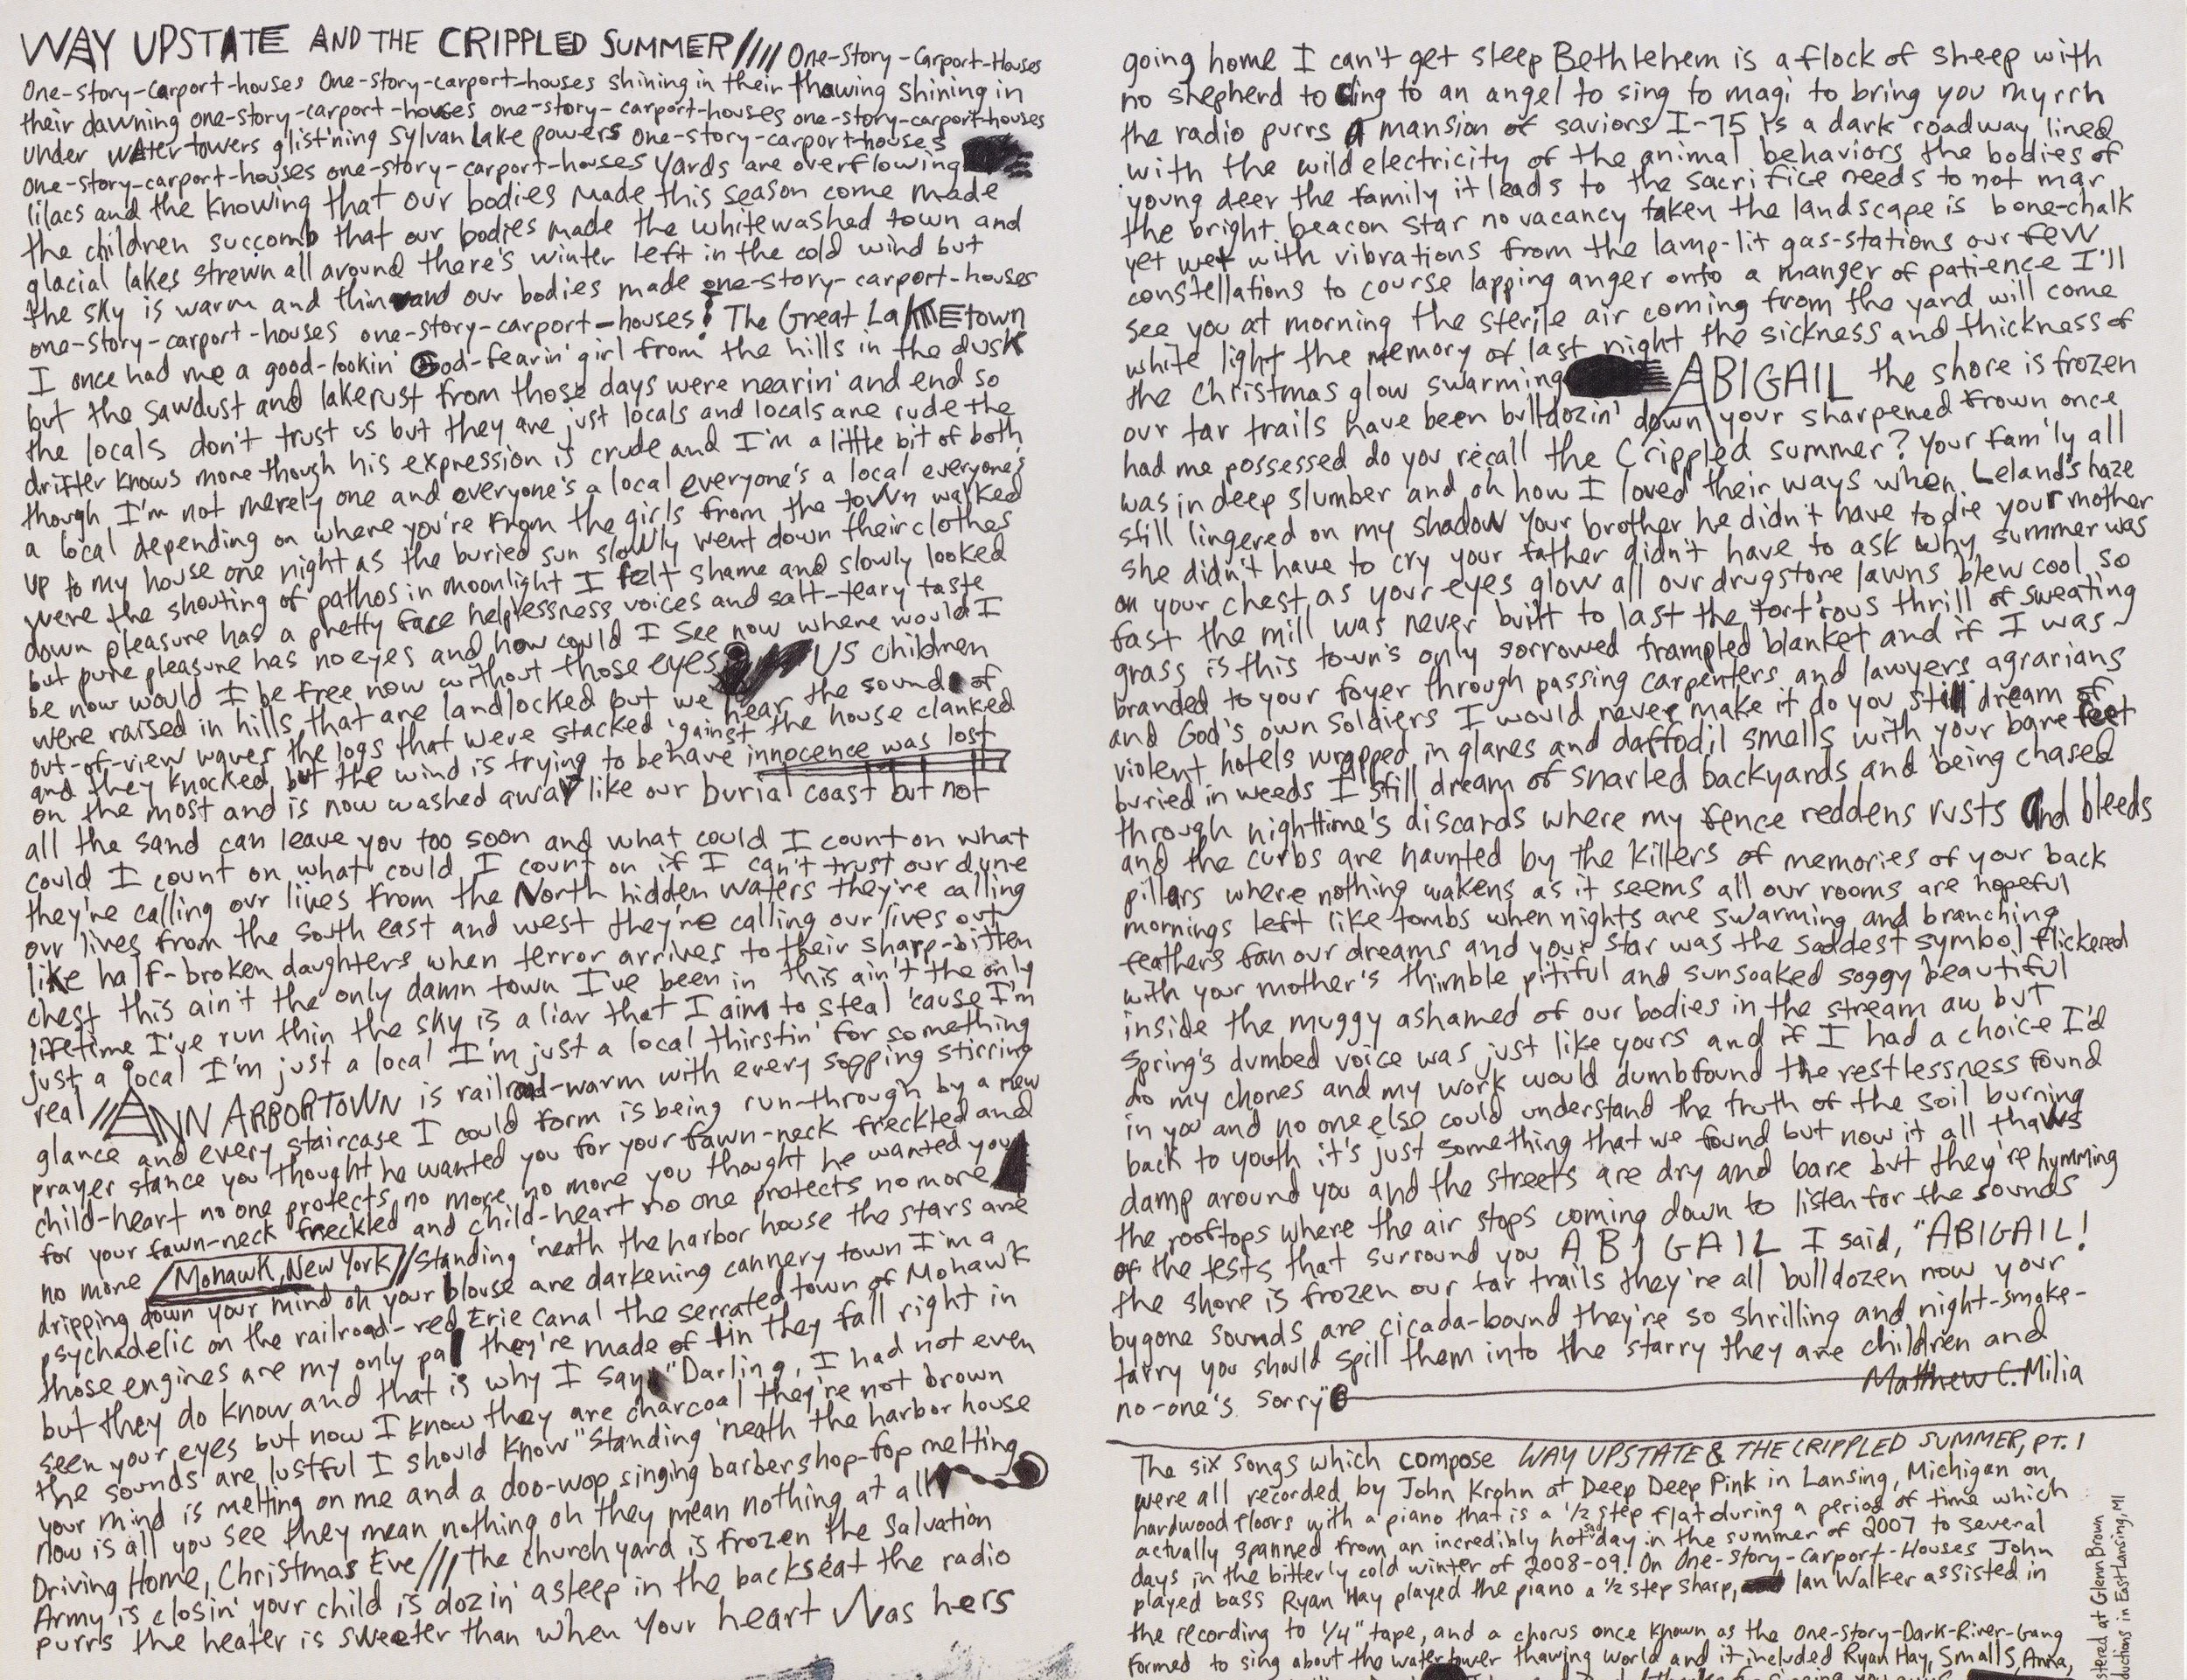 WAY UPSTATE AND THE CRIPPLED SUMMER//// One-Story-Carport-Houses
One-story-carport-houses One-story-carport-houses shining in their thawing shining in
their dawning one-story-carport-houses one-story-carport-houses one-story-carport-houses
under watertowers glist'ning Sylvan Lake powers one-story-carport-houses
one-story-carport-houses one-story-carport-houses yards are overflowing
lilacs and the knowing that our bodies made this season come made
the children succomb that our bodies made the whitewashed town and
glacial lakes strewn all around there's winter left in the cold wind but
the sky is warm and thin and our bodies made one-story-carport-houses
one-story-carport-houses one-story-carport-houses! The Great LAKEtown
I once had me a good-lookin' God-fearin' girl from the hills in the dusk
but the sawdust and lakerust from those days were nearin' and end so
the locals don't trust us but they are just locals and locals are rude the
drifter knows more though his expression is crude and I'm a little bit of both
though I'm not merely one and everyone's a local everyone's a local everyone's
a local depending on where you're from the girls from the town walked
up to my house one night as the buried sun slowly went down their clothes
were the shouting of pathos in moonlight I felt shame and slowly looked
down pleasure has a pretty face helplessness voices and salt-teary taste
but pure pleasure has no eyes and how could I see now where would I
be now would I be free now without those eyes? US children
were raised in hills that are landlocked but we hear the sound of
out-of-view waves the logs that were stacked 'gainst the house clanked
and they knocked but the wind is trying to behave innocence was lost
on the most and is now washed away like our burial coast but not
all the sand can leave you too soon and what could I count on what
could I count on what could I count on if I can't trust our dune
they're calling our lives from the North hidden waters they're calling
our lives from the south east and west they're calling our lives out
like half-broken daughters when terror arrives to their sharp-bitten
chest this ain't the only damn town I've been in this ain't the only
lifetime I've run thin the sky is a liar that I aim to steal 'cause I'm
just a local I'm just a local I'm just a local thirstin' for something
real//ANN ARBORTOWN is railroad-warm with every sopping stirring
glance and every staircase I could form is being run-through by a new
prayer stance you thought he wanted you for your fawn-neck freckled and
child-heart no one protects no more no more you thought he wanted you
for your fawn-neck freckled and child-heart no one protects no more
no more Mohawk, New York//Standing 'neath the harbor house the stars are
dripping down your mind oh your blouse are darkening cannery town I'm a
psychadelic on the railroad-red Erie Canal the serrated town of Mohawk
those engines are my only pal they're made of tin they fall right in
but they do know and that is why I say "Darling, I had not even
seen your eyes but now I know they are charcoal they're not brown
the sounds are lustful I should know" Standing 'neath the harbor house
your mind is melting on me and a doo-wop singing barbershop-fop melting
now is all you see they mean nothing oh they mean nothing at all
Driving Home, Christmas Eve///The churchyard is frozen the Salvation
Army is closin' your child is dozin' asleep in the backseat the radio
purrs the heater is sweeter than when your heart was hers
going home I can't get sleep Bethlehem is a flock of sheep with
no shepherd to cling to an angel to sing to magi to bring you myrrh
the radio purrs a mansion of saviors I-75 is a dark roadway lined
with the wild electricity of the animal behaviors the bodies of
young deer the family it leads to the sacrifice needs to not mar
the bright beacon star no vacancy taken the landscape is bone-chalk
yet wet with vibrations from the lamp-lit gas-stations our few
constellations to course lapping anger onto a manger of patience I'll
see you at morning the sterile air coming from the yard will come
white light the memory of last night the sickness and thickness of
the Christmas glow swarming ABIGAIL the shore is frozen
our tar trails have been bulldozin' down your sharpened frown once
had me possessed do you recall the Crippled summer? Your fam'ly all
was in deep slumber and oh how I loved their ways when Leland's haze
still lingered on my shadow your brother he didn't have to die your mother
she didn't have to cry your father didn't have to ask why summer was
on your chest as your eyes glow all our drugstore lawns blew cool so
fast the mill was never built to last the tort'rous thrill of sweating
grass is this town's only sorrowed trampled blanket and if I was
branded to your foyer through passing carpenters and lawyers agrarians
and God's own soldiers I would never make it do you still dream of
violent hotels wrapped in glares and daffodil smells with your bare feet
buried in weeds I still dream of snarled backyards and being chased
through nighttime's discards where my fence reddens rusts and bleeds
and the curbs are haunted by the killers of memories of your back
pillars where nothing wakens as it seems all our rooms are hopeful
mornings left like tombs when nights are swarming and branching
feathers fan our dreams and your star was the saddest symbol flickered
with your mother's thimble pitiful and sunsoaked soggy beautiful
inside the muggy ashamed of our bodies in the stream aw but
Spring's dumbed voice was just like yours and if I had a choice I'd
do my chores and my work would dumbfound the restlessness found
in you and no one else could understand the truth of the soil burning
back to youth it's just something that we found but now it all thaws
damp around you and the streets are dry and bare but they're hymming
the rooftops where the air stops coming down to listen for the sounds
of the tests that surround you ABIGAIL I said, "ABIGAIL!
the shore is frozen our tar trails they're all bulldozen now your
bygone sounds are cicada-bound they're so shrilling and night-smoke-
tarry you should spill them into the starry they are children and
no-one's sorry"
Matthew C. Milia
The six songs which compose WAY UPSTATE & THE CRIPPLED SUMMER, PT. 1
were all recorded by John Krohn at Deep Deep Pink in Lansing, Michigan on
hardwood floors with a piano that is a 1/2 step flat during a period of time which
actually spanned from an incredibly hot day in the summer of 2007 to several
days in the bitterly cold winter of 2008-09! On One-Story-Carport-Houses John
played bass Ryan Hay played the piano a 1/2 step sharp, Ian Walker assisted in
the recording to 1/4" tape, and a chorus once known as the One-Story-Dark-River-Gang
formed to sing about the watertower thawing world and it included Ryan Hay, Small S, Anna,
stered at Glenn Brown
ductions in East Lansing, MI